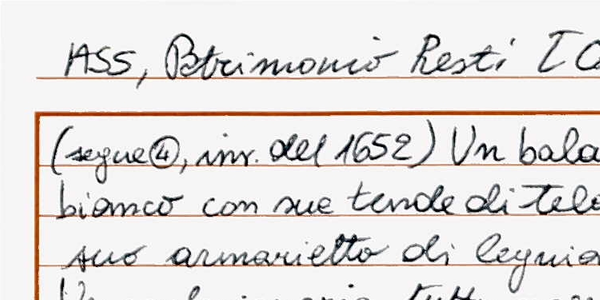 ASS, Patrimonio Resti I
(segue ④, inv. del 1652) Un bala
bianco con sue tende di tela
suo armarietto di legnia